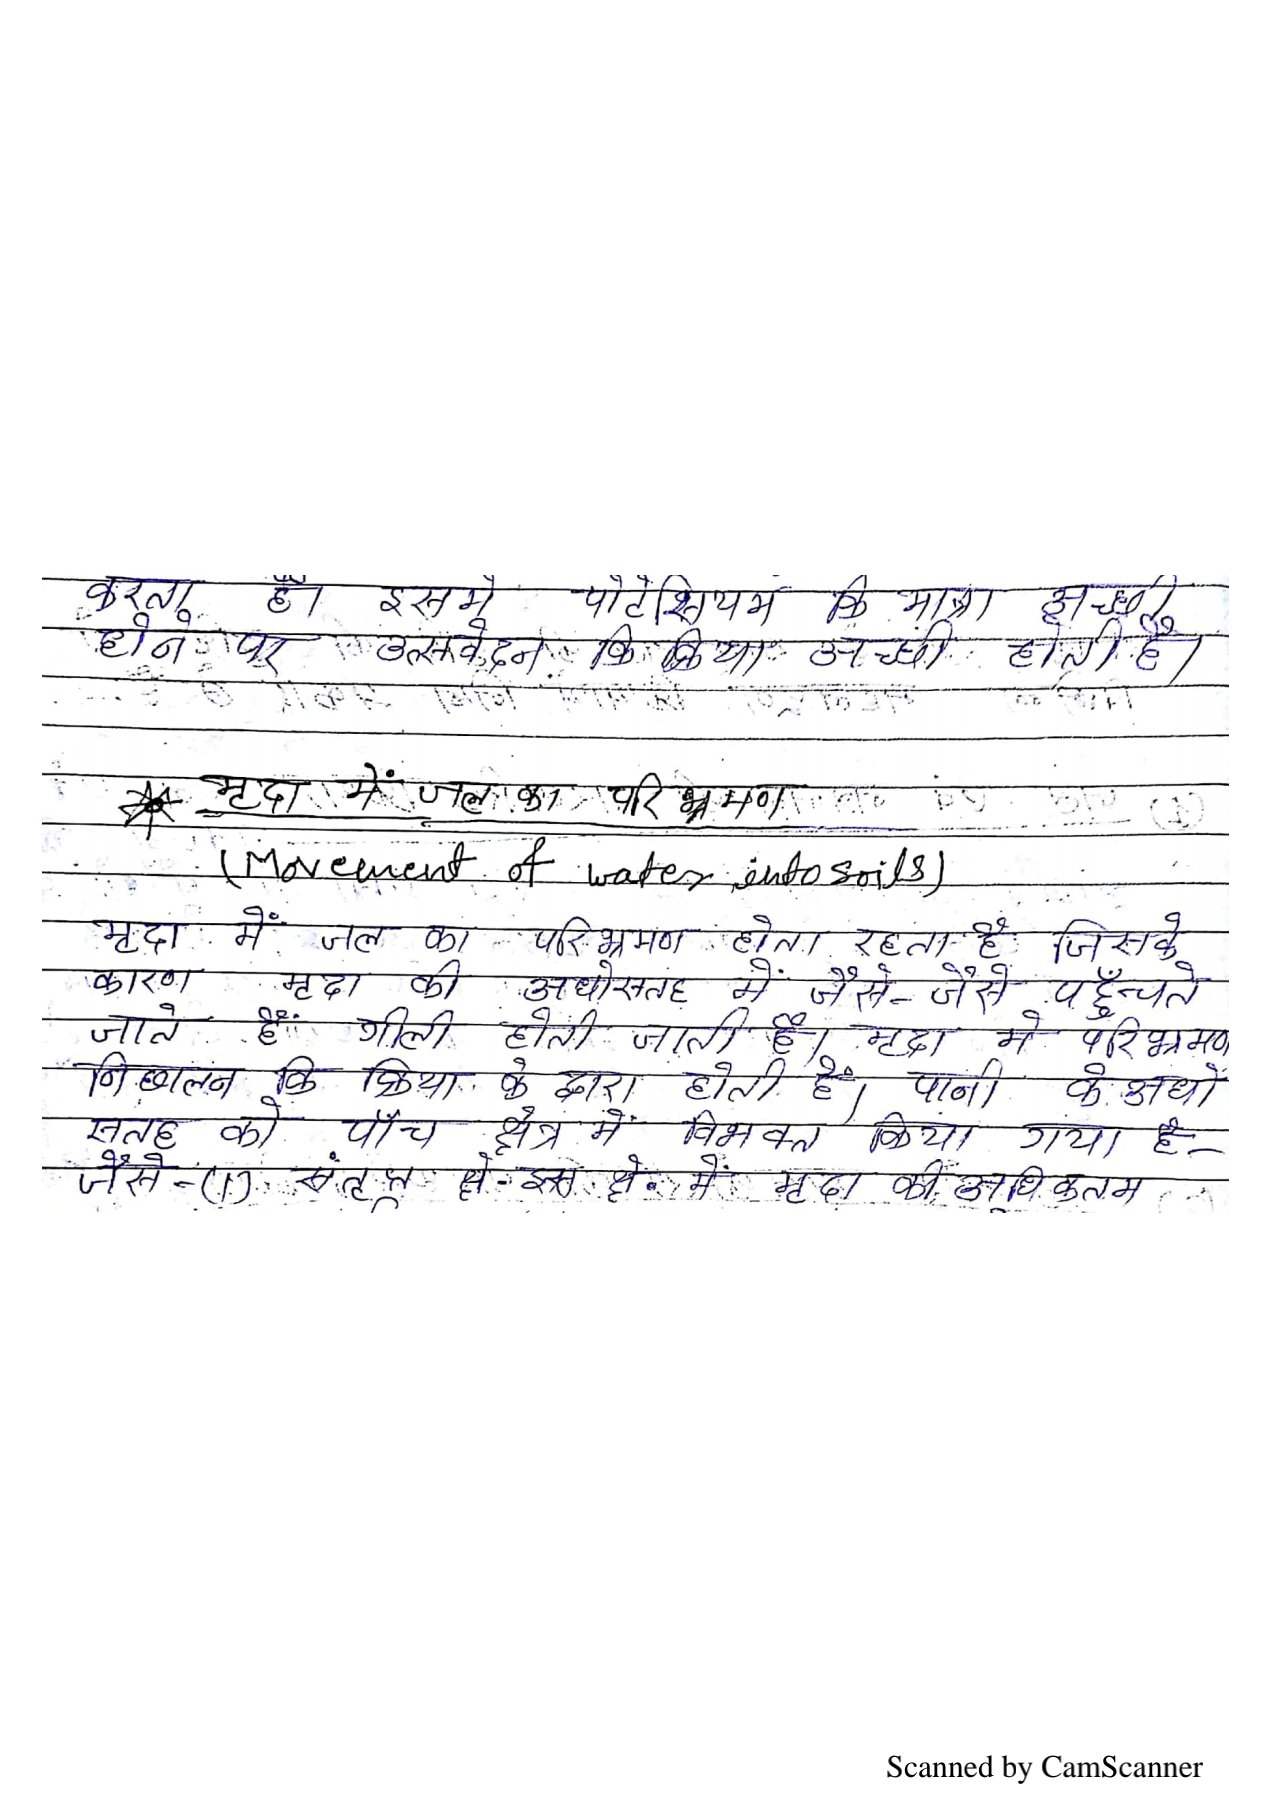 करता है। इसमे पोटेशियम कि मात्रा अच्छी
होने पर उत्सवेदन कि क्रिया अच्छी होती है।
मृदा में जल का परिभ्रमण
(Movement of water into soils)
मृदा में जल का परिभ्रमण होता रहता है जिसके
कारण मृदा की अधोसतह में जैसे-जैसे पहुँन्चते
जाते हैं गीली होती जाती है। मृदा मे परिभ्रमण
निछालन कि क्रिया के द्वारा होती है। पानी के अधो
सतह को पाँच क्षेत्र में विभक्त किया गया है-
जैसे-(1) संतृप्त क्षे- इस क्षे. में मृदा की अधिकतम
Scanned by CamScanner